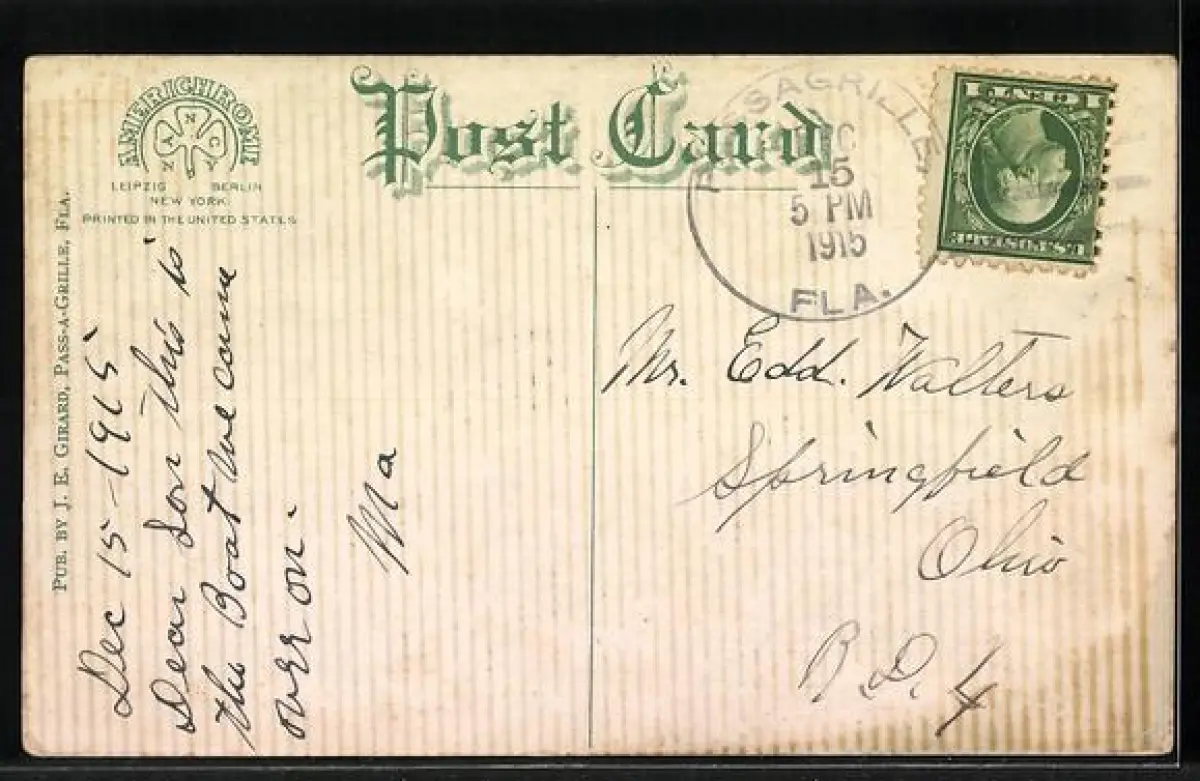 AMERICHROME
A N C N
LEIPZIG BERLIN
NEW YORK
PRINTED IN THE UNITED STATES
PUB. BY J. E. GIRARD, PASS-A-GRILLE, FLA.
Post Card
PASSAGRILLE
DEC
15
5 PM
1915
FLA.
U.S. POSTAGE
1 CENT 1
Dec 15-1915
Dear Son this is
the Boat we came
over on.
Ma
Mr. Edd. Walters
Springfield
Ohio
R.D. 4